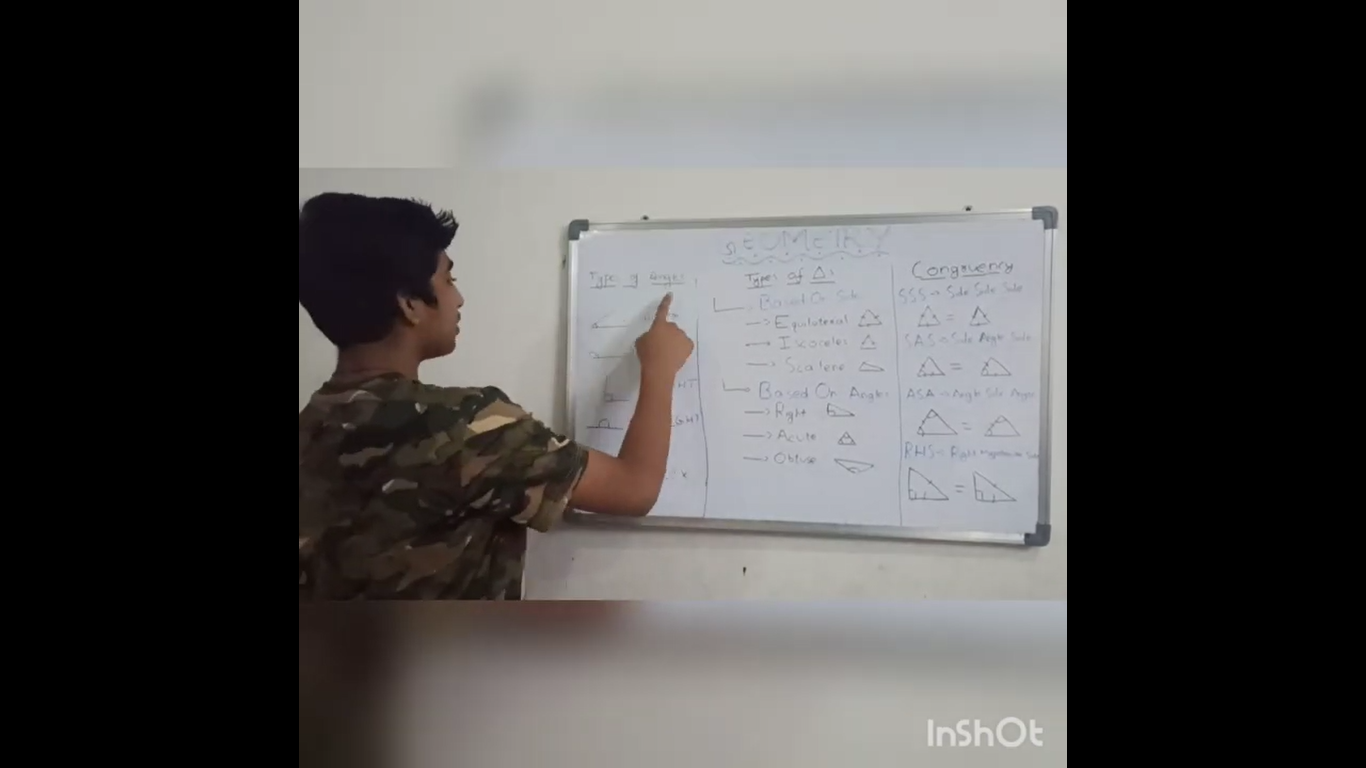 GEOMETRY
Types of Angles :
Types of Δs
Based On Side
→ Equilateral
→ Isosceles
→ Scalene
Based On Angles
→ Right
→ Acute
→ Obtuse
Congruency
SSS → Side Side Side
=
SAS → Side Angle Side
=
ASA → Angle Side Angle
=
RHS → Right Side
=
InShOt